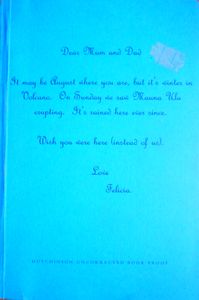 Dear Mum and Dad
It may be August where you are, but it's winter in
Volcano. On Sunday we saw Mauna Ulu
erupting. It's rained here ever since.
Wish you were here (instead of us).
Love
Felicia.
HUTCHINSON UNCORRECTED BOOK PROOF